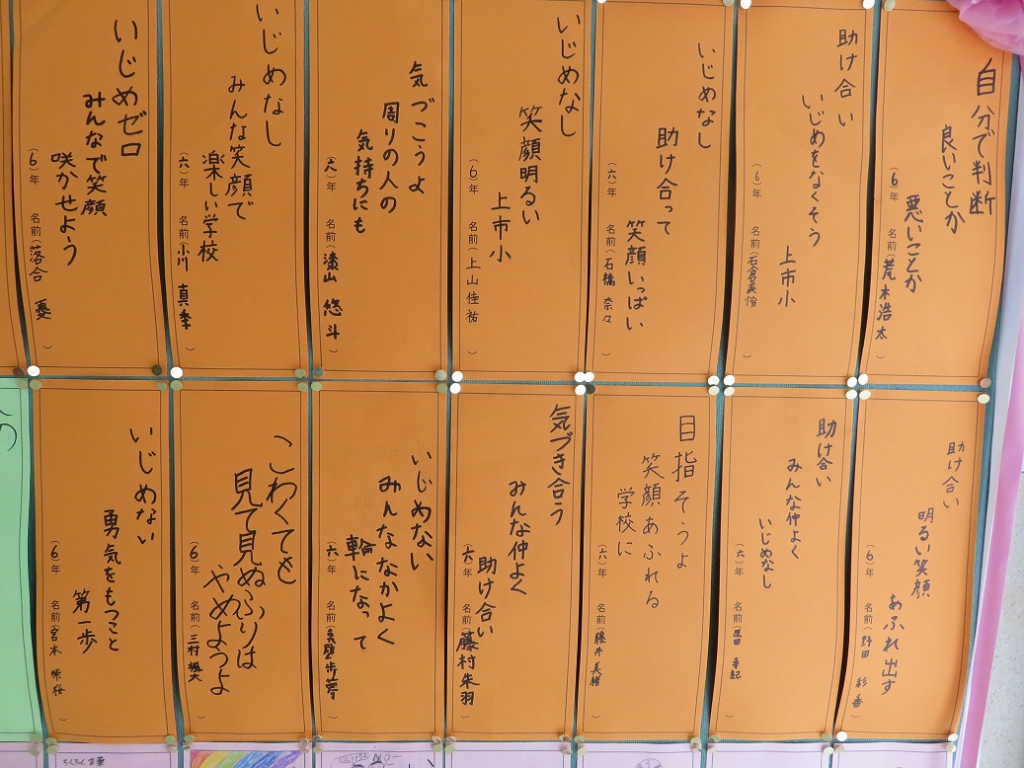 自分で判断
良いことか
悪いことか
(6)年 名前(荒木浩太)
助け合い
いじめをなくそう
上市小
(6)年 名前(石倉
いじめなし
助け合って
笑顔いっぱい
(六)年 名前(石橋 奈々)
いじめなし
笑顔明るい
上市小
(6)年 名前(上山佳祐)
気づこうよ
周りの人の
気持ちにも
(六)年 名前(漆山 悠斗)
いじめなし
みんな笑顔で
楽しい学校
(六)年 名前(小川 真季)
いじめゼロ
みんなで笑顔
咲かせよう
(6)年 名前(落合 憂)
助け合い
明るい笑顔
あふれ出す
(6)年 名前(野田 彩香)
助け合い
みんな仲よく
いじめなし
(六)年 名前(
目指そうよ
笑顔あふれる
学校に
(六)年 名前(藤井 美穂)
気づき合う
みんな仲よく
助け合い
(六)年 名前(藤村朱羽)
いじめない
みんななかよく
輪になって
(六)年 名前(
こわくても
見て見ぬふりは
やめようよ
(6)年 名前(三村 颯大)
いじめない
勇気をもつこと
第一歩
(6)年 名前(宮本
ちくちく言葉